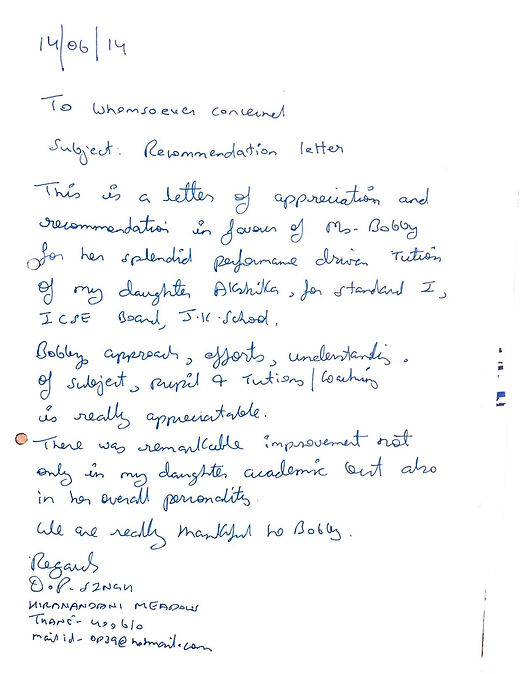 14/06/14
To Whomsoever concerned
Subject: Recommendation letter
This is a letter of appreciation and
recommendation in favour of Ms. Bobby
for her splendid performance driven Tution
of my daughter Akshika, for standard I,
ICSE Board, J.K. School.
Bobby, approach, efforts, understanding.
of subject, pupil & Tutions/Coaching
is really appreciatable.
There was remarkable improvement not
only in my daughter academic but also
in her overall personality.
We are really thankful to Bobby.
Regards
O.P. SINGH
HIRANANDANI MEADOWS
THANE - 400610
mail id - OP39@hotmail.com